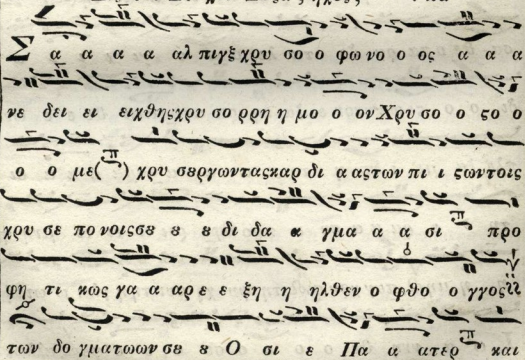 Σ α α α α αλ πιγξ χρυ σο ο φω νο ο ος α α α
νε δει ει ειχθης χρυ σο ρρη η μο ο ον Χρυ σο ο ςο ο
ο ο με( ) χρυ σȣργων τας καρ δι α ας των πι ι ςων τοις
χρυ σε πο νοις σȣ ȣ ȣ δι δα α γμα α α σι προ
φη τι κως γα α α ρε ε ξη η ηλθεν ο φθο ο γγος
των δο γματωων σȣ ȣ Ο σι ε Πα α α τερ και